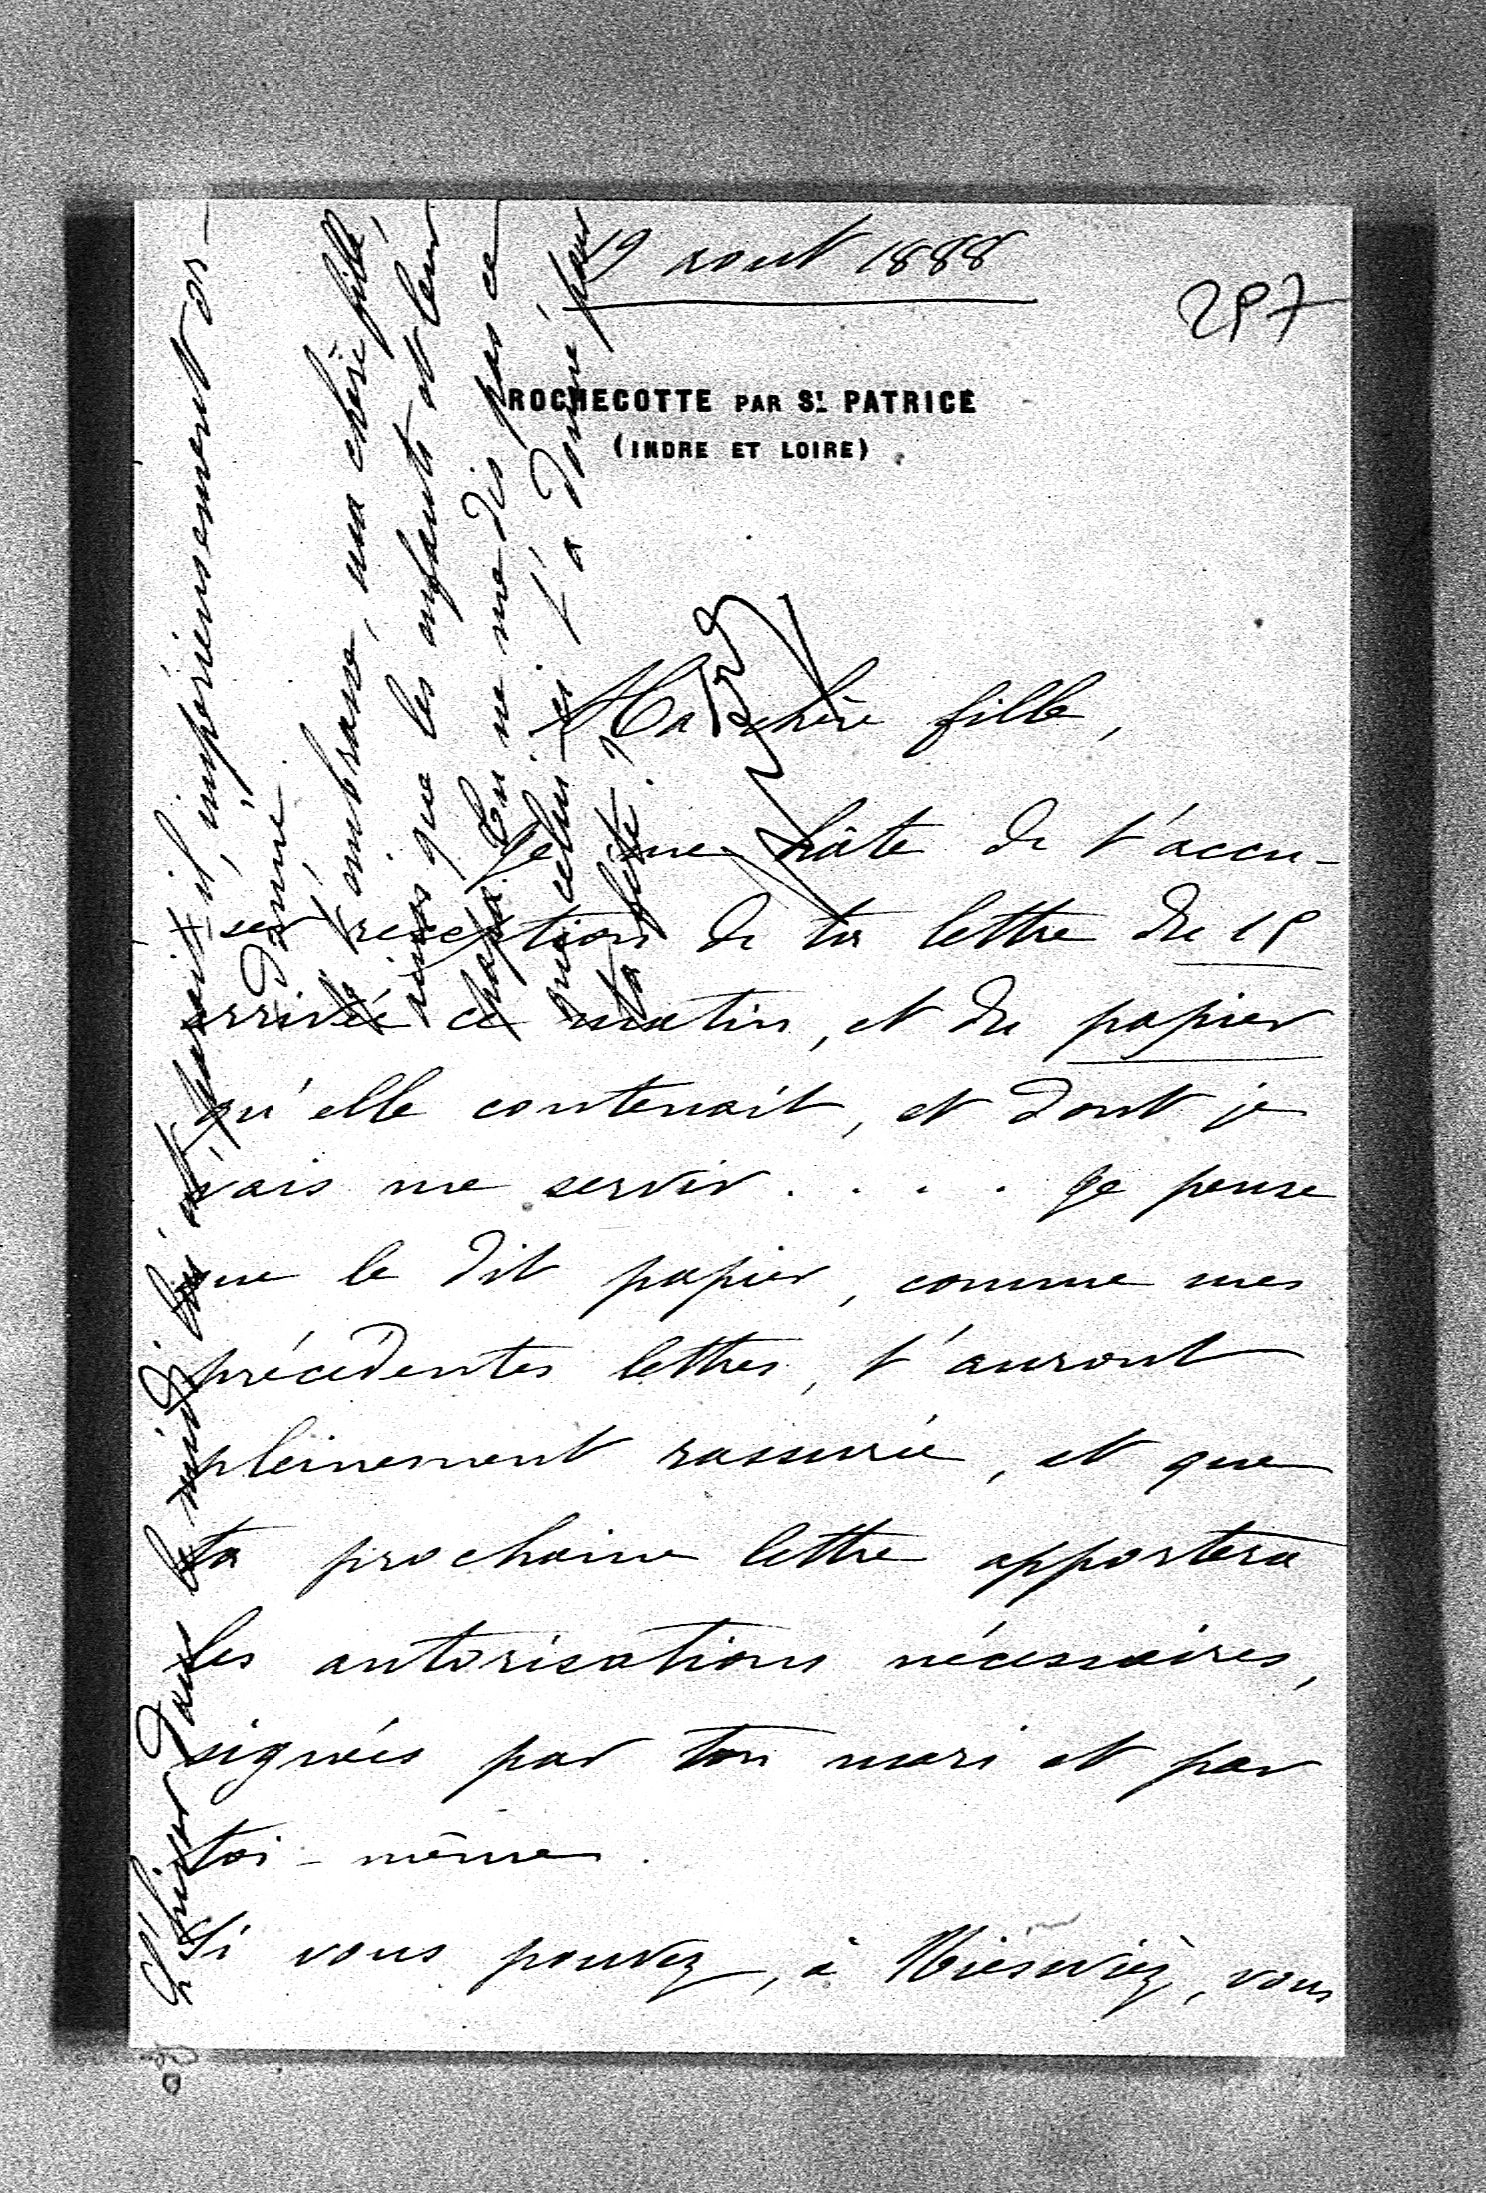 19 aout 1888
297
ROCHECOTTE PAR St. PATRICE
(INDRE ET LOIRE)
Ma chère fille,
Je me hâte de t'accu-
ser réception de ta lettre du 15
arrivée ce matin, et du papier
qu'elle contenait, et dont je
vais me servir . . . . Je pense
que le dit papier, comme mes
précédentes lettres, t'auront
pleinement rassurée, et que
ta prochaine lettre apportera
les autorisations nécessaires,
signées par ton mari et par
toi-même.
Si vous pouvez, à Nieswiez, vous
L'hiver dans le midi lui est, parait-il, impérieusement or-
donné.
Je t'embrasse, ma chère fille,
ainsi que les enfants et leur
papa. Tu ne me dis pas ce
que celui-ci t'a donné pour
ta fête ?